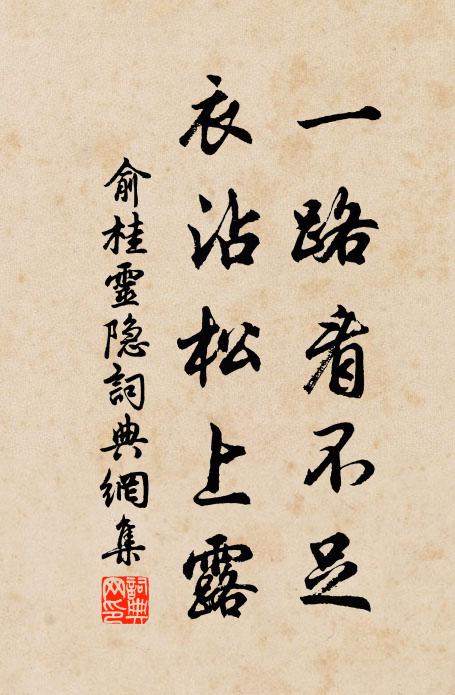 一路看不足
衣沾松上露
俞桂靈隐詞典網集
詞典网印